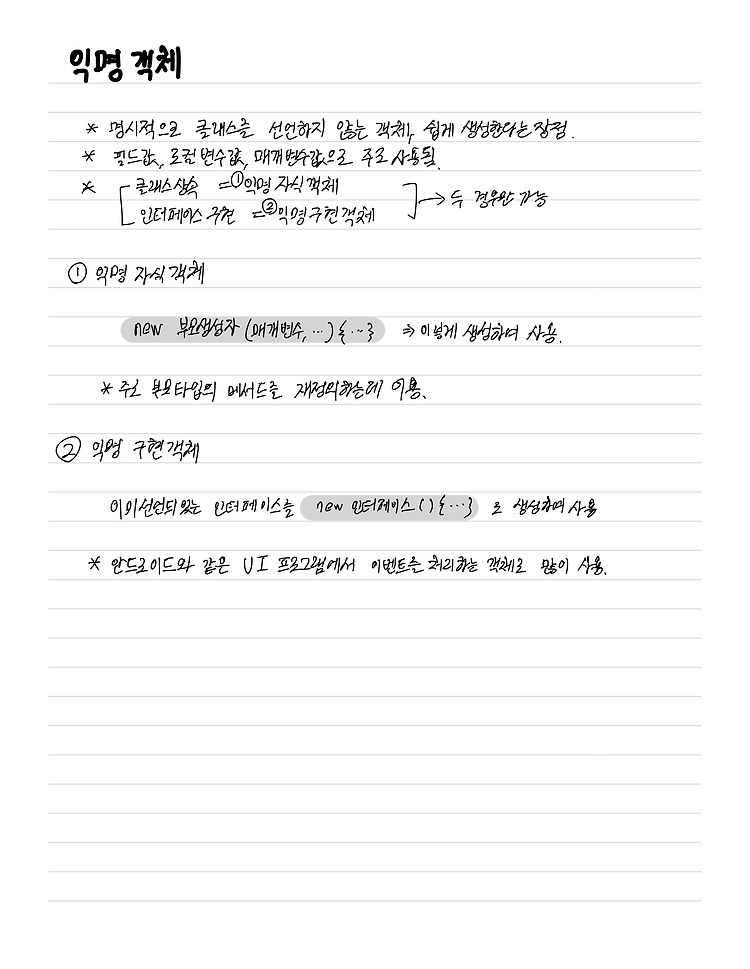 익명 객체
* 명시적으로 클래스를 선언하지 않는 객체, 쉽게 생성한다는 장점.
* 필드값, 로컬 변수값, 매개변수값으로 주로 사용됨.
* 클래스 상속 = ① 익명 자식 객체
인터페이스 구현 = ② 익명 구현 객체 → 두 경우만 가능
① 익명 자식 객체
new 부모생성자 (매개변수, ...) { ... } ⇒ 이렇게 생성하여 사용.
* 주로 부모타입의 메서드를 재정의하는데 이용.
② 익명 구현 객체
이미 선언되있는 인터페이스를 new 인터페이스 ( ) { ... } 로 생성하여 사용
* 안드로이드와 같은 UI 프로그램에서 이벤트를 처리하는 객체로 많이 사용.